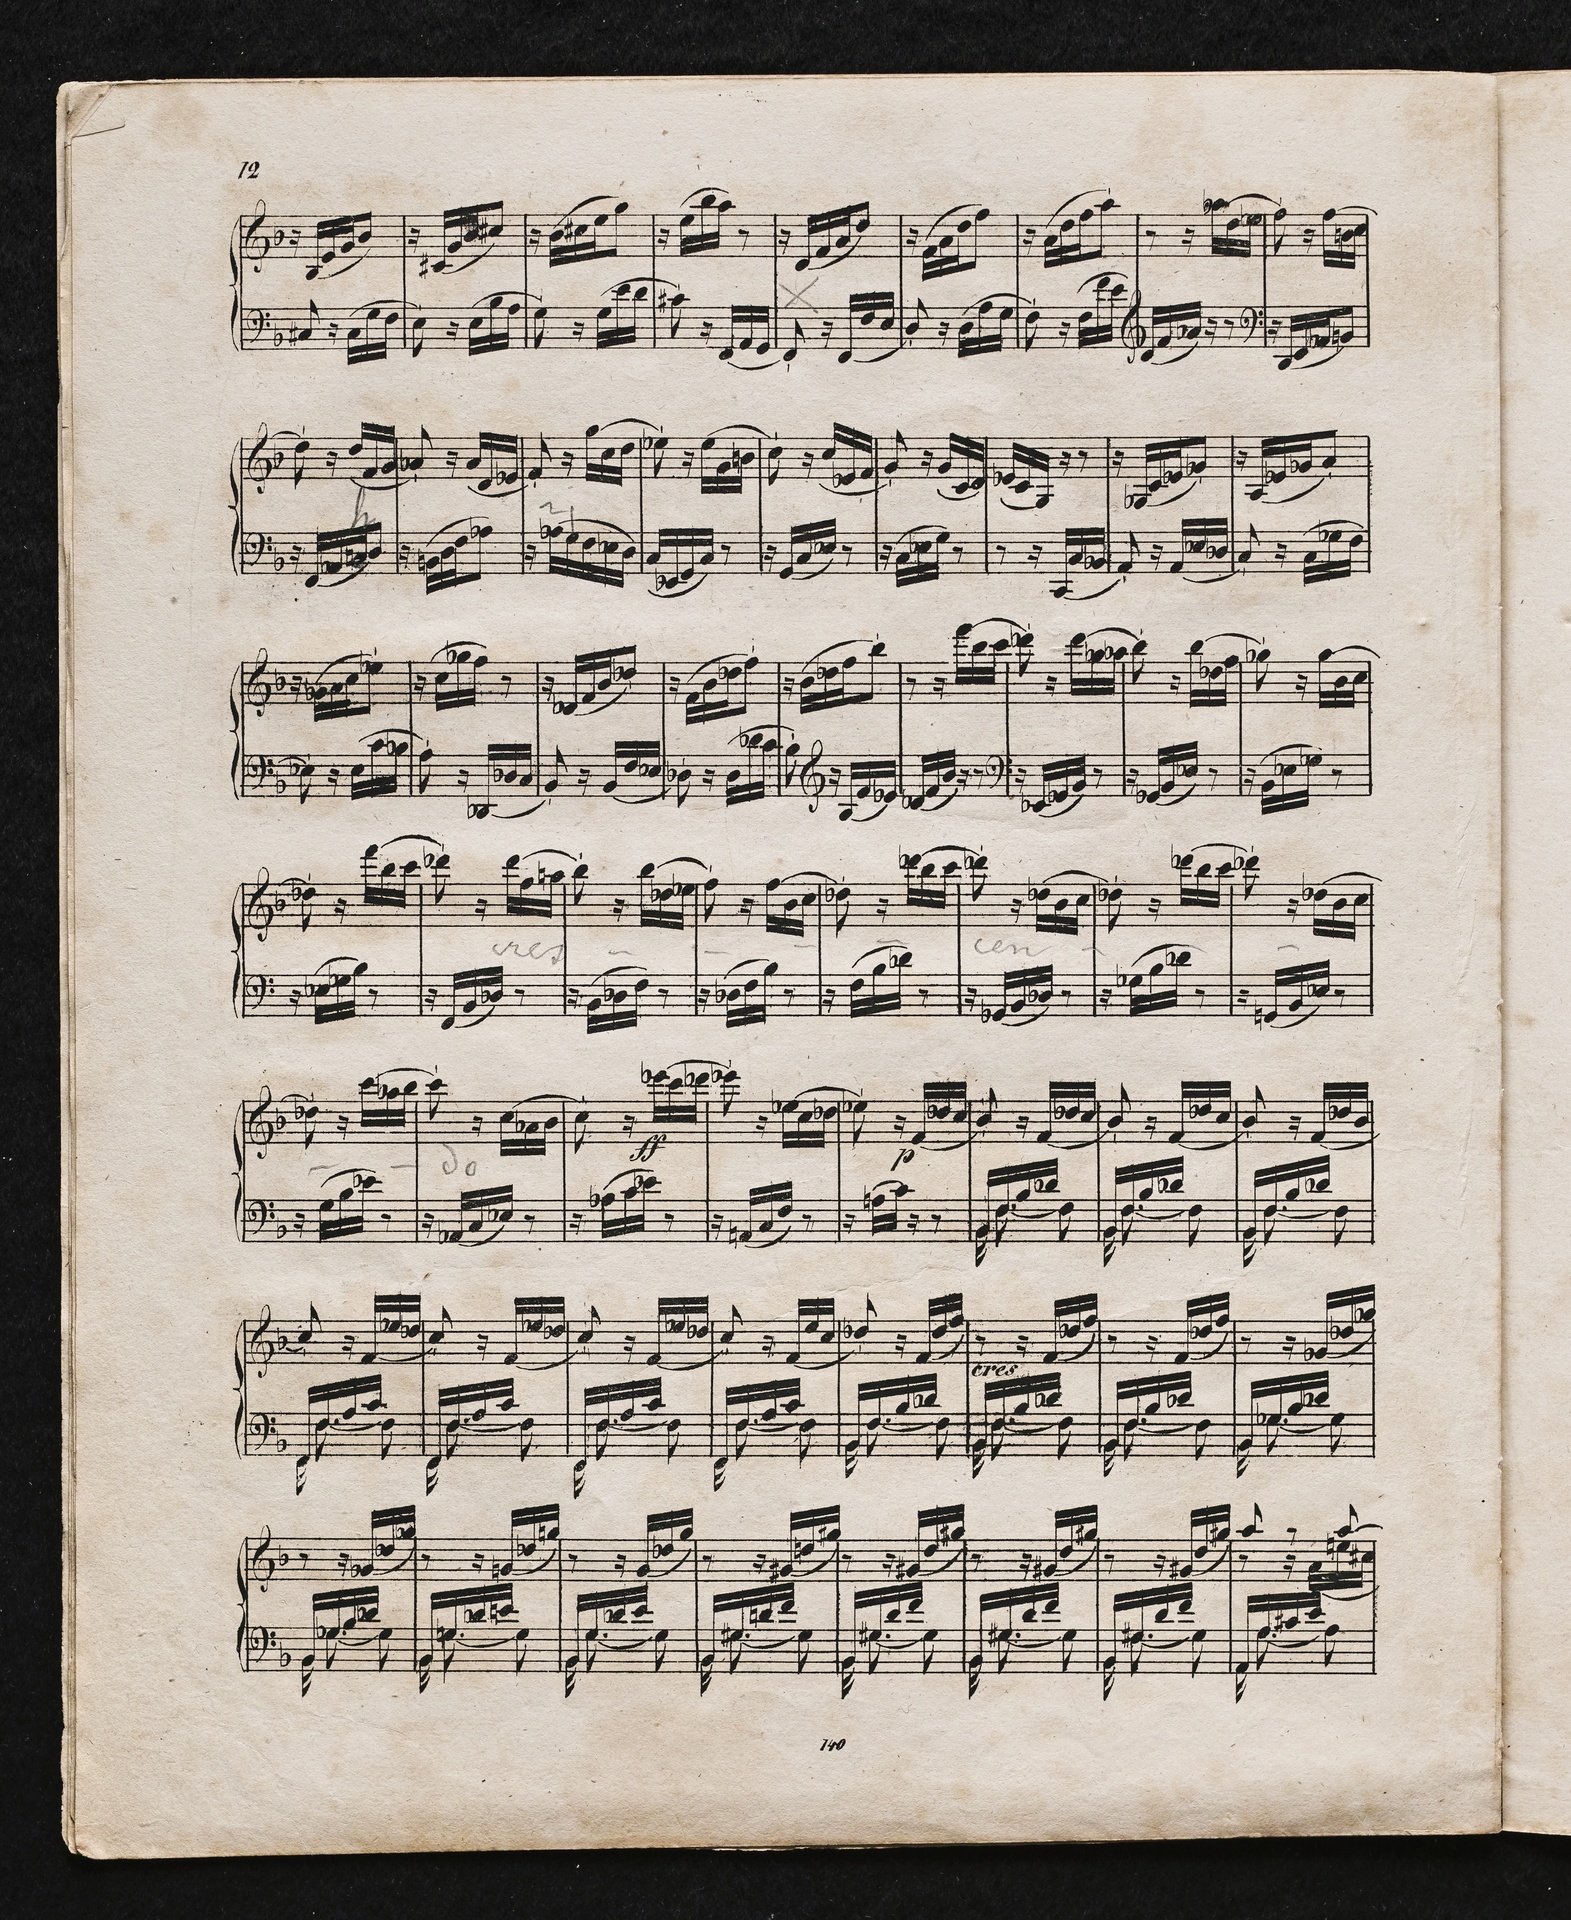 12
cres - - - - cen - - -
- - do
ff
p
cres.
140